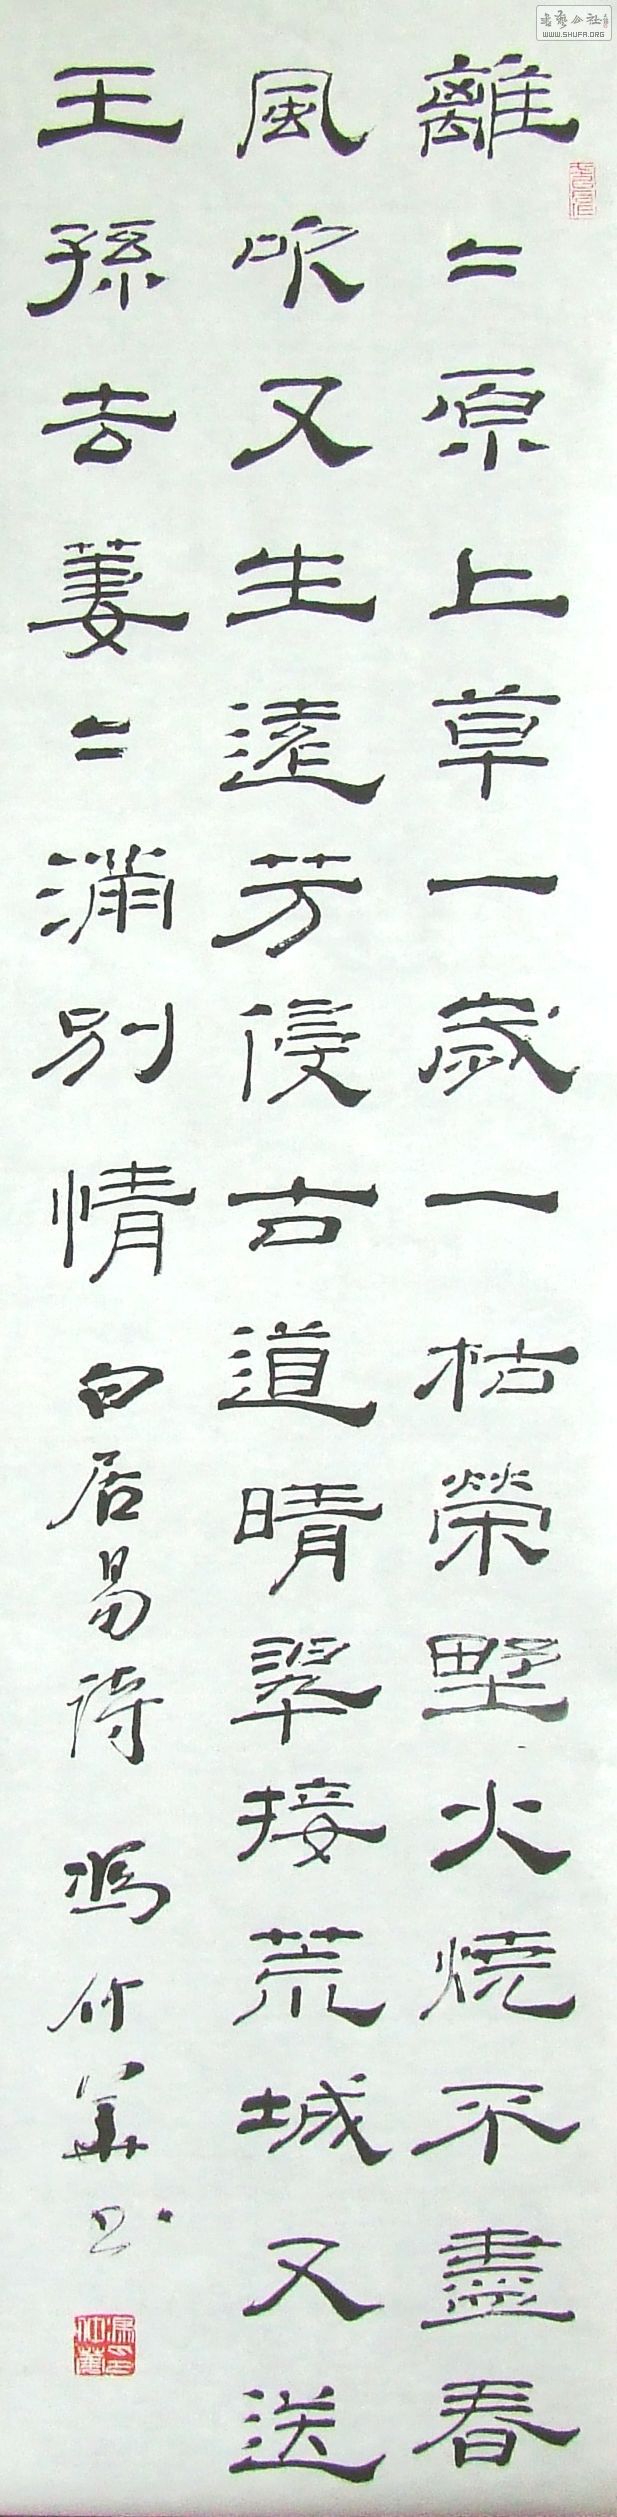 離〻原上草一歲一枯榮野火燒不盡春
風吹又生遠芳侵古道晴翠接荒城又送
王孫去萋〻滿別情
白居易詩 馮竹華书
WWW.SHUFA.ORG